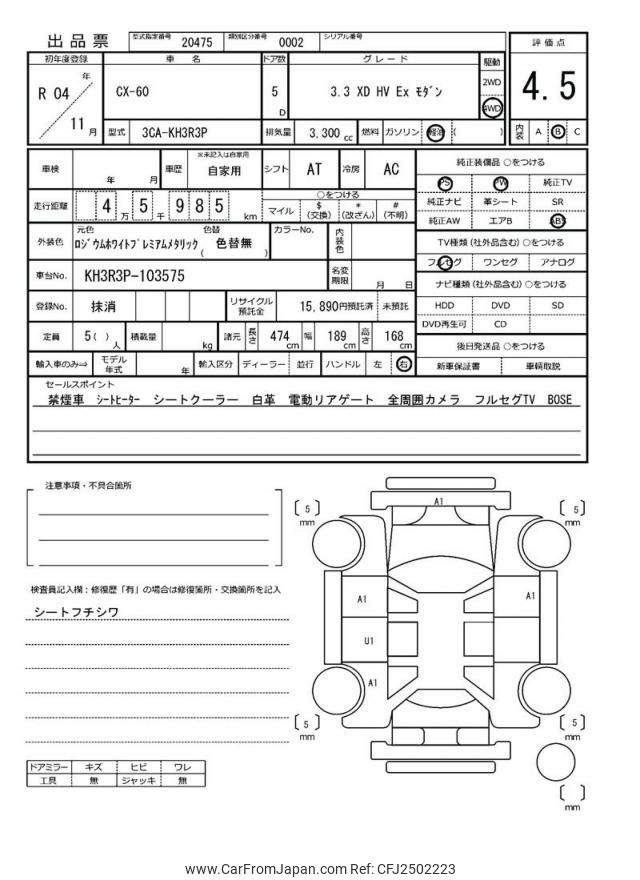 出品票 型式指定番号 20475 類別区分番号 0002 シリアル番号
初年度登録 車 名 ドア数 グレード 駆動 評価点
R 04 年 11 月 CX-60 5 D 3.3 XD HV Ex ﾓﾀﾞﾝ 2WD 4WD 4.5
型式 3CA-KH3R3P 排気量 3,300 cc 燃料 ガソリン 軽油 ( ) 内装 A B C
車検 年 月 車歴 ※未記入は自家用 自家用 シフト AT 冷房 AC 純正装備品 ○をつける
PS PW 純正TV
走行距離 4 万 5 千 9 8 5 km ○をつける マイル $ (交換) * (改ざん) # (不明) 純正ナビ 革シート SR
純正AW エアB ABS
外装色 元色 ﾛｼﾞｳﾑﾎﾜｲﾄﾌﾟﾚﾐｱﾑﾒﾀﾘｯｸ 色替 ( 色替無 ) カラーNo. 内装色 TV種類 (社外品含む) ○をつける
フルセグ ワンセグ アナログ
車台No. KH3R3P-103575 名変期限 月 日 ナビ種類 (社外品含む) ○をつける
登録No. 抹消 リサイクル預託金 15,890円預託済 未預託 HDD DVD SD
DVD再生可 CD
定員 5 ( ) 人 積載量 kg 諸元 長さ 474 cm 幅 189 cm 高さ 168 cm 後日発送品 ○をつける
輸入車のみ⇒ モデル年式 年 輸入区分 ディーラー 並行 ハンドル 左 右 新車保証書 車輌取説
セールスポイント
禁煙車 ｼｰﾄﾋｰﾀｰ シートクーラー 白革 電動リアゲート 全周囲カメラ フルセグTV BOSE
注意事項・不具合箇所
検査員記入欄：修復歴「有」の場合は修復箇所・交換箇所を記入
シートフチシワ
ドアミラー キズ ヒビ ワレ
工具 無 ジャッキ 無
A1
5 mm
5 mm
A1
A1
U1
A1
5 mm
5 mm
mm
www.CarFromJapan.com Ref: CFJ2502223